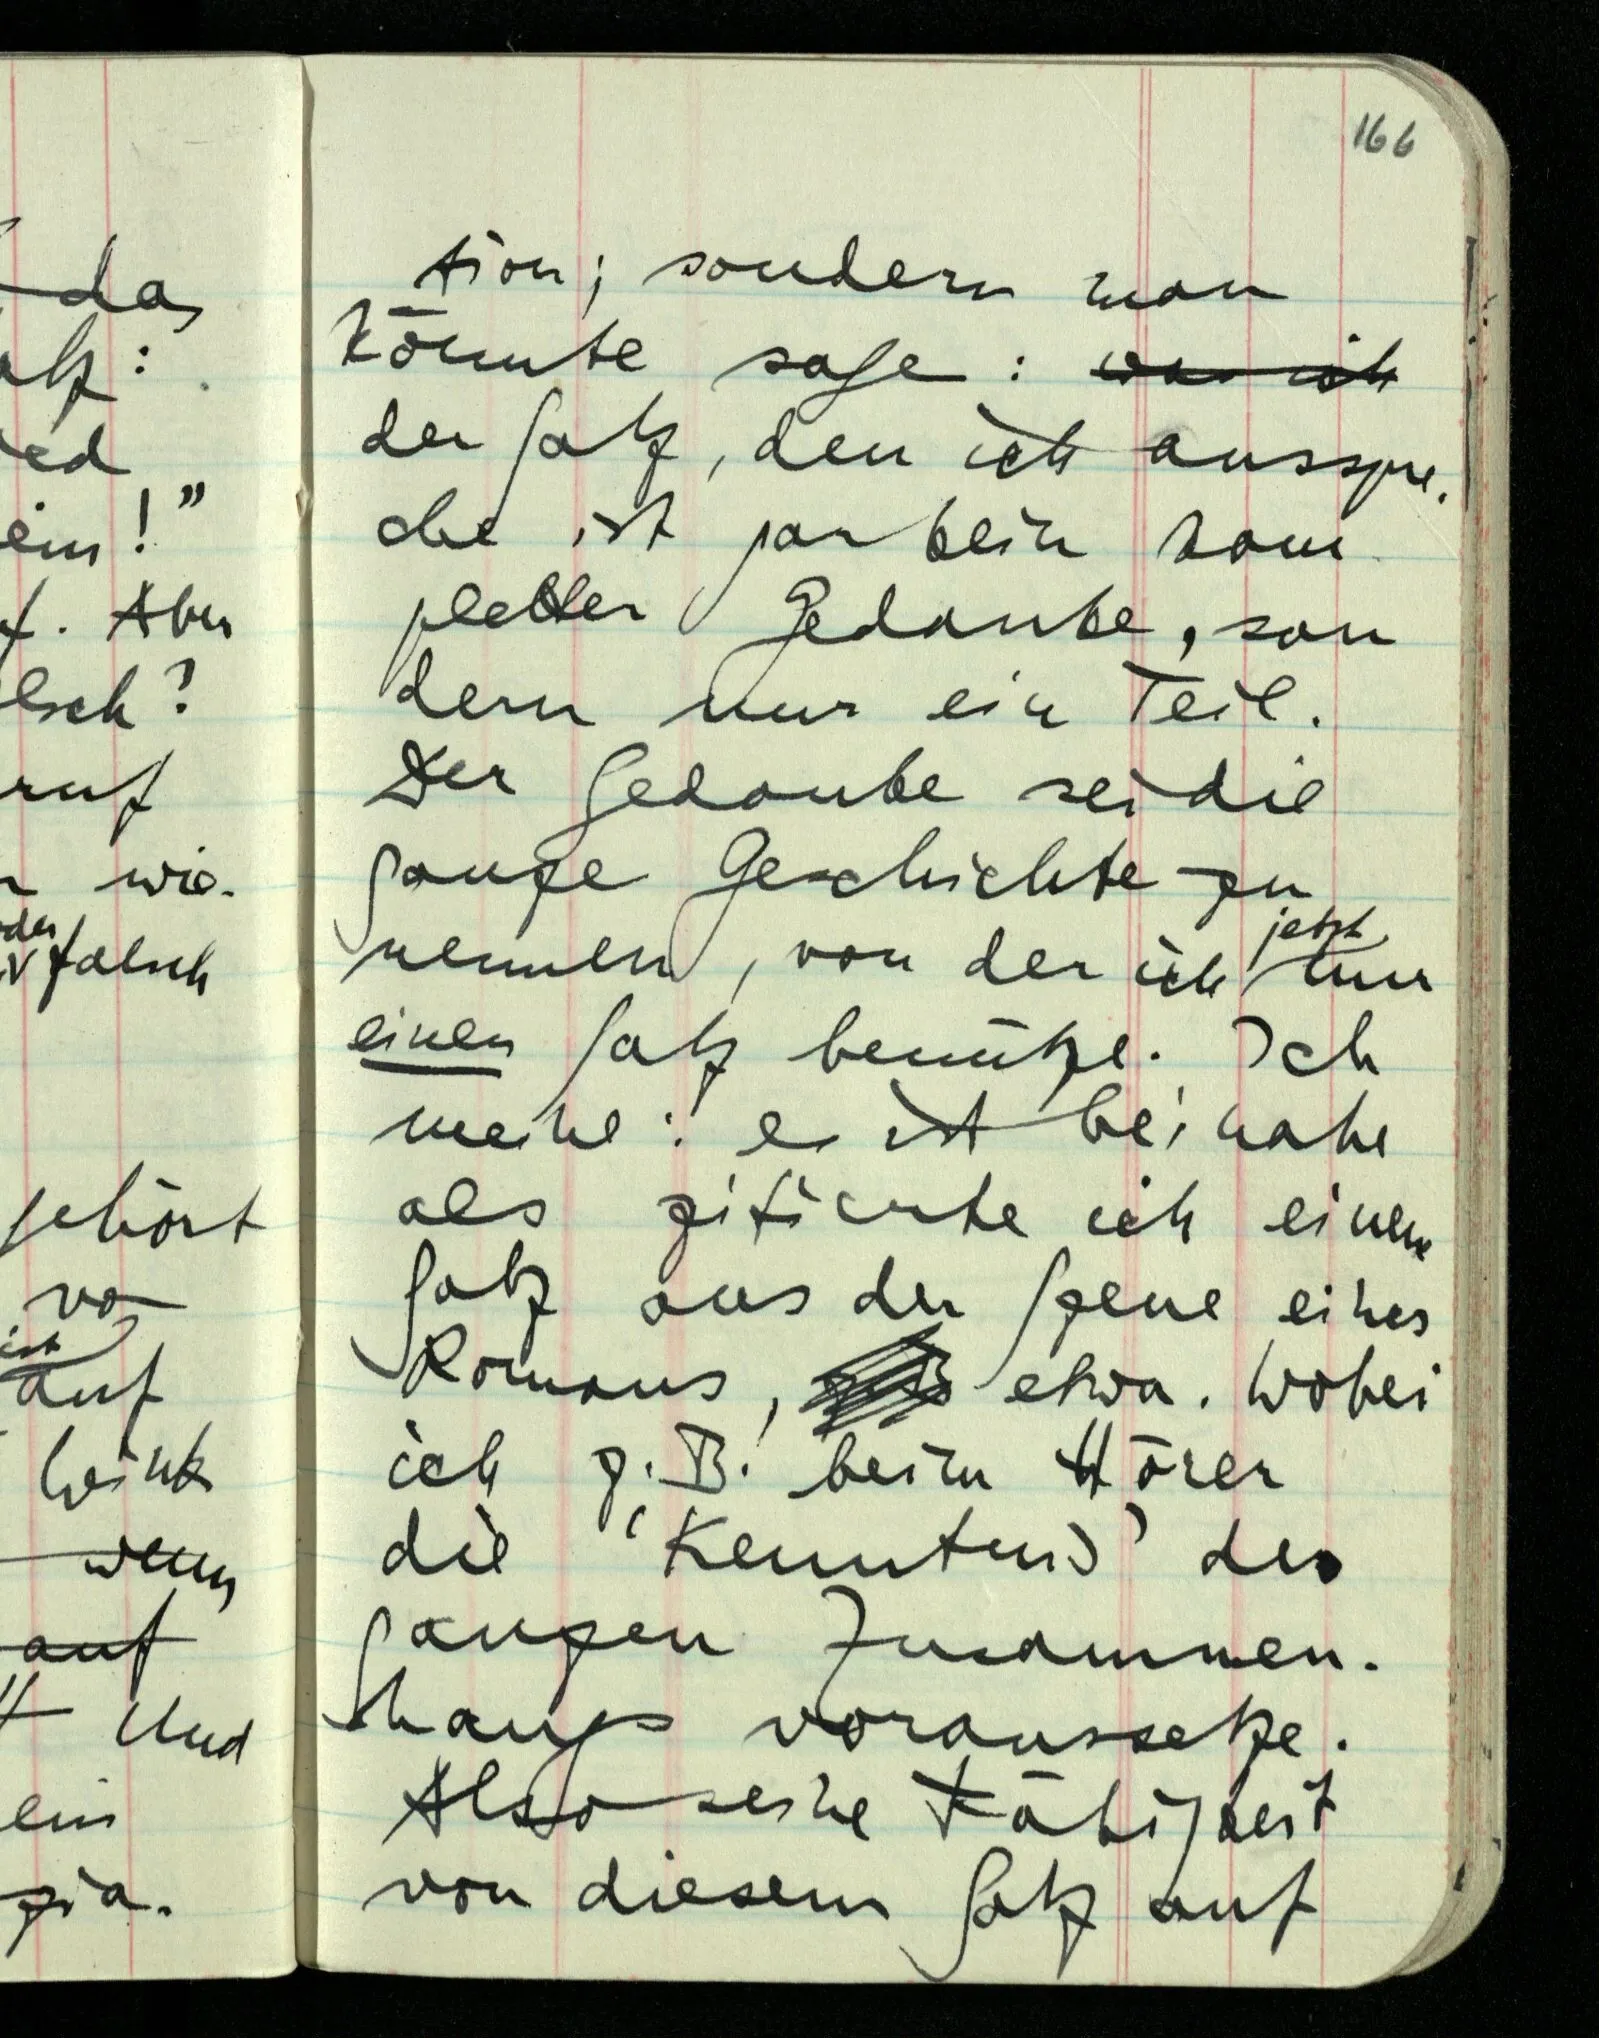 166
da
atz :
ied
ein ! "
f . Aber
lsch ?
ruf
wie-
oder
falsch
gehört
vo
ist
auf
Wink
wenn
auf
Und
ein
zia-
tion ; sondern man
könnte sage : was ich
der Satz , den ich ausspre-
che ist gar kein kom
pletter Gedanke , son
dern nur ein Teil .
Der Gedanke sei die
ganze Geschichte zu
jetzt
nennen , von der ich nur
einen Satz benütze . Ich
meine : es ist beinahe
als zitierte ich einen
Satz aus der Szene eines
Romans , etwa . Wobei
ich z.B. beim Hörer
die 'Kenntnis' des
ganzen Zusammen-
hangs voraussetze .
Also seine Fähigkeit
von diesem Satz auf